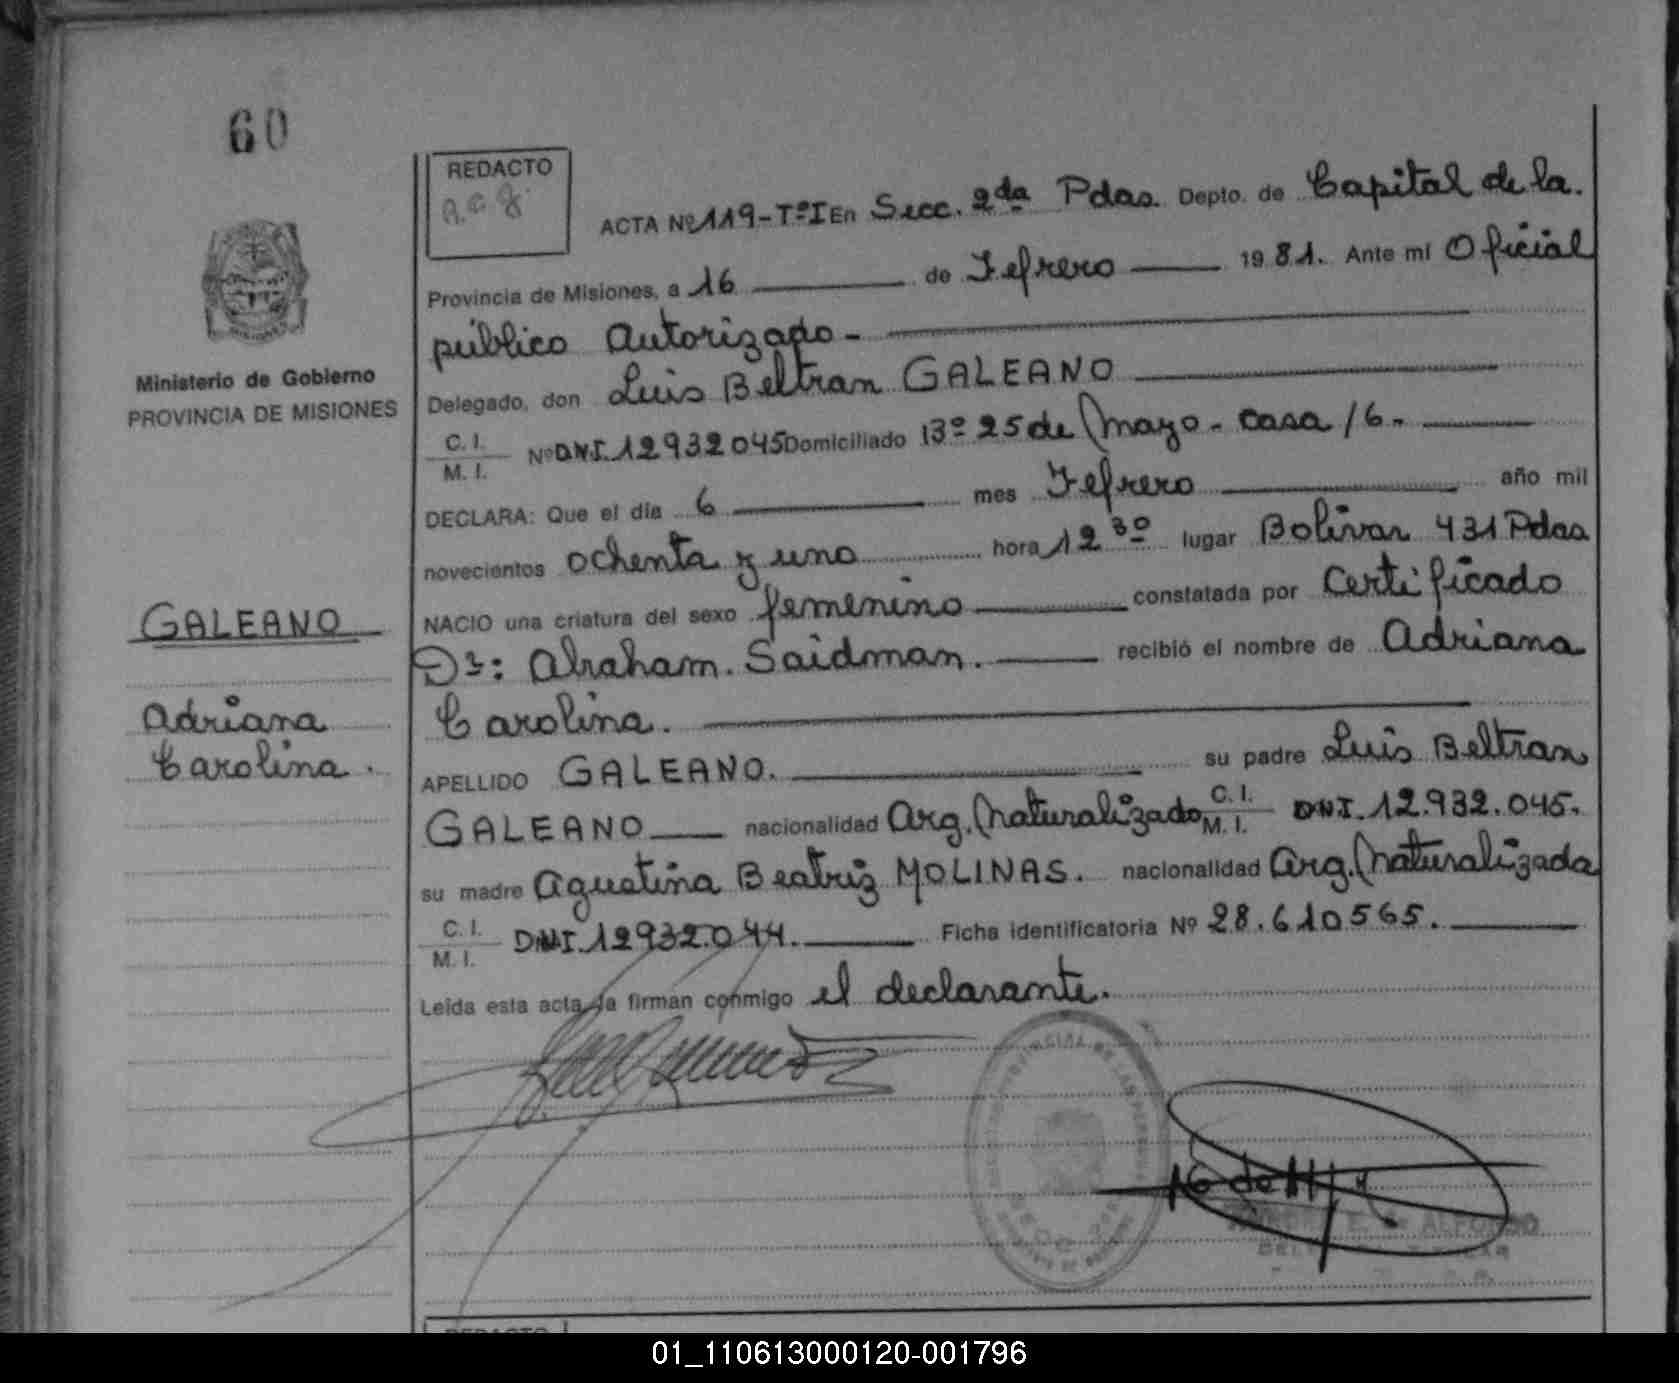 60
REDACTO
ACTA Nº 119-TºI En Secc. 2da Pdas. Depto. de Capital de la.
Provincia de Misiones, a 16 de Febrero 1981. Ante mí Oficial
público Autorizado -
Ministerio de Gobierno
PROVINCIA DE MISIONES
Delegado, don Luis Beltran GALEANO
C. I.
M. I.
Nº DNI. 12932045 Domiciliado Bº 25 de Mayo - casa 16.-
DECLARA: Que el día 6 mes Febrero año mil
novecientos ochenta y uno hora 12 30 lugar Bolivar 431 Pdas
GALEANO
NACIO una criatura del sexo femenino constatada por Certificado
Dr: Abraham. Saidman. recibió el nombre de Adriana
Adriana
Carolina.
Carolina.
APELLIDO GALEANO. su padre Luis Beltran
GALEANO nacionalidad Arg. Naturalizado C. I. M. I. DNI. 12.932.045.
su madre Agustina Beatriz MOLINAS. nacionalidad Arg. Naturalizada
C. I.
M. I.
DNI. 12932.044. Ficha identificatoria Nº 28.610565.
Leída esta acta la firman conmigo el declarante.
ALFONSO
REDACTO
01_110613000120-001796